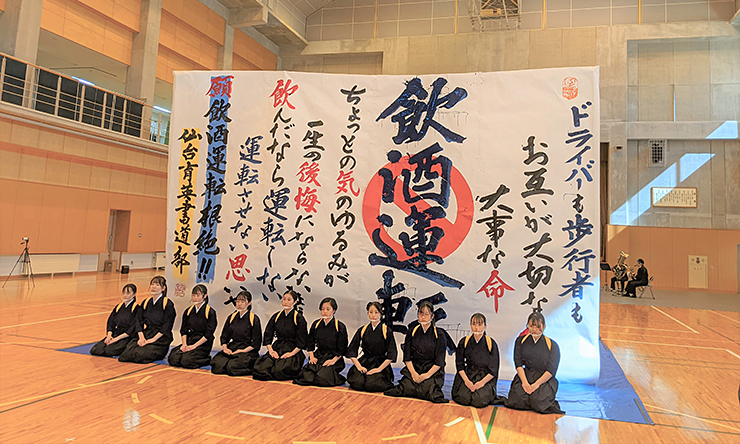 ドライバーも歩行者も
お互いが大切な
大事な命
飲酒運転
ちょっとの気のゆるみが
一生の後悔にならない
飲んだなら運転しない
運転させない思い
願飲酒運転根絶!!
仙台育英書道部